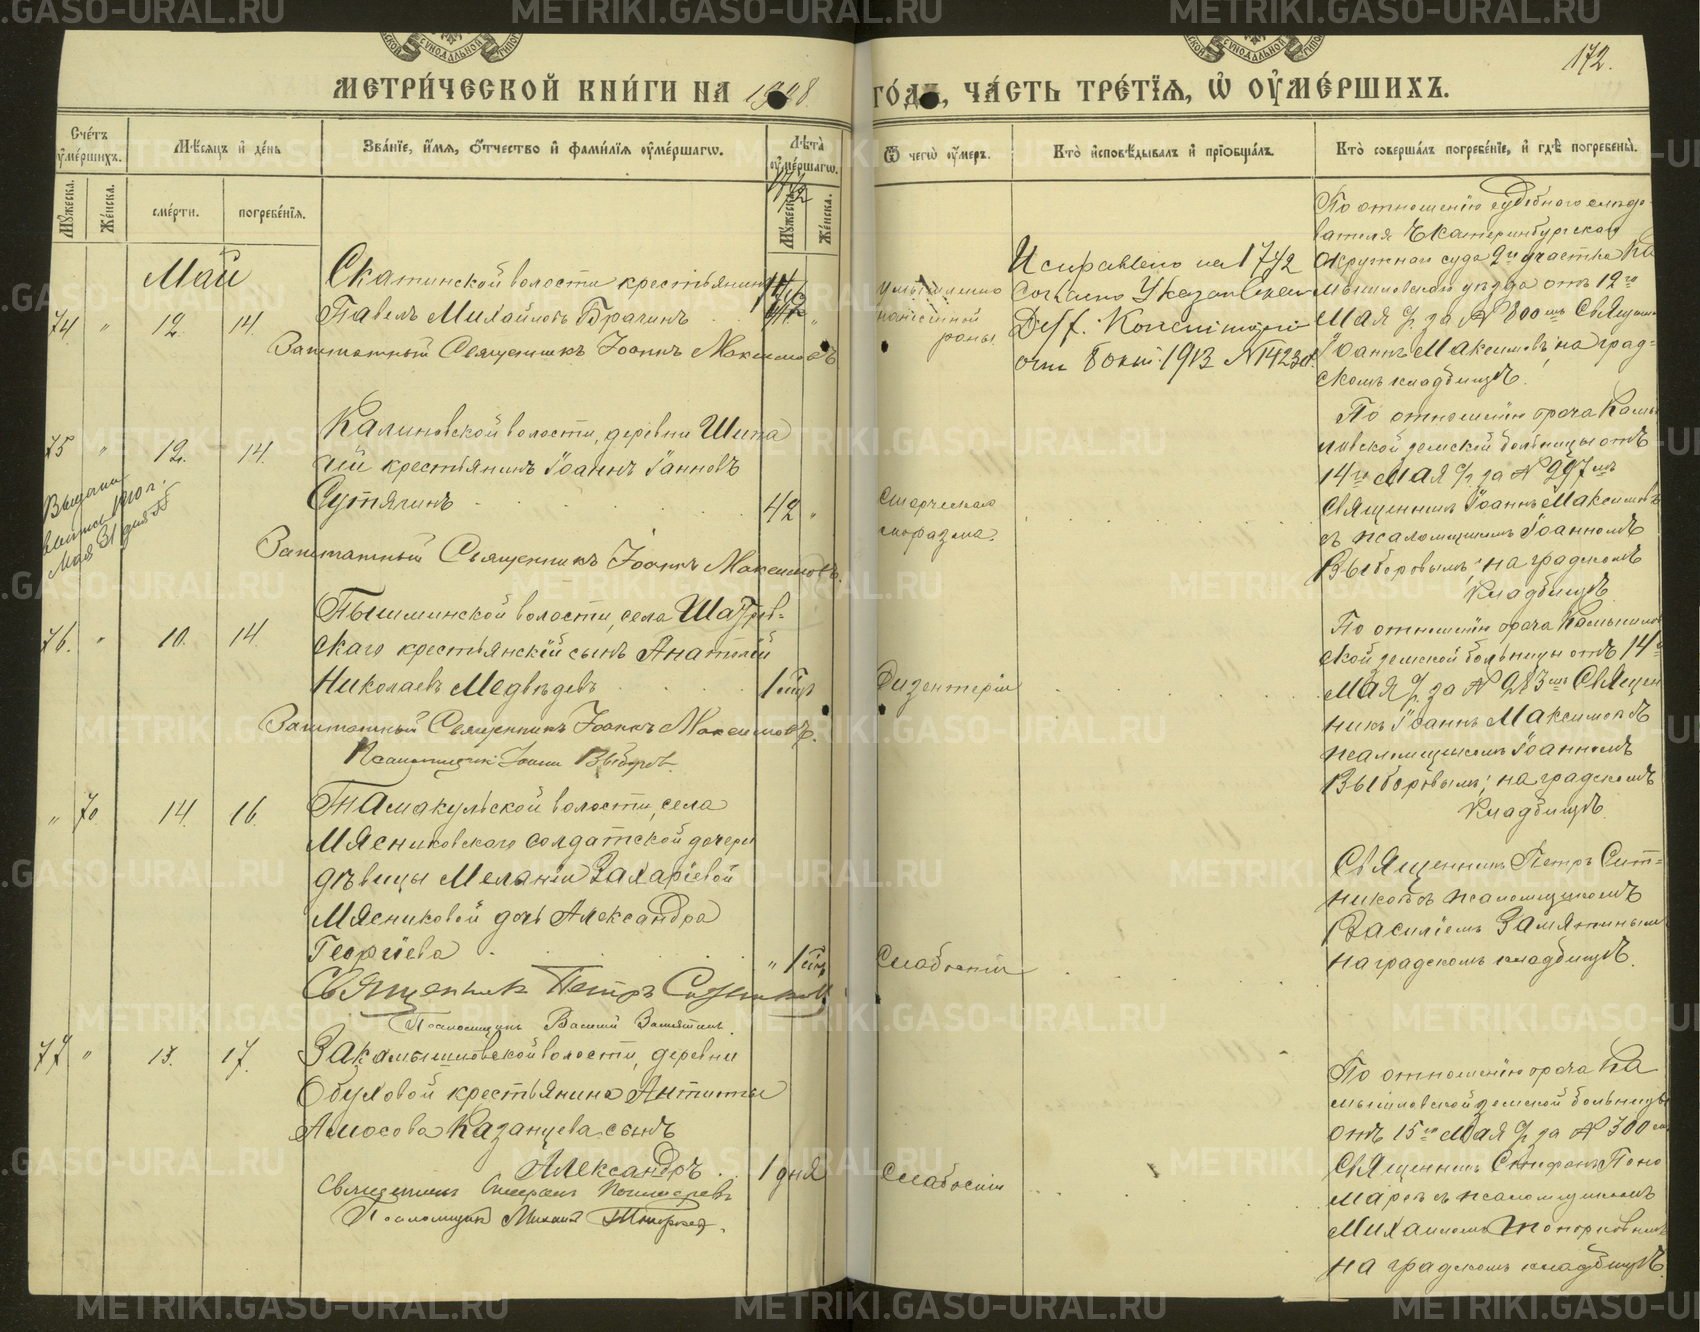 172.
МЕТРИ́ЧЕСКОЙ КНИ́ГИ НА 1908 ГО́ДЪ, ЧА́СТЬ ТРЕ́ТІЯ, Ѽ ОУ҆МЕ́РШИХЪ.
Сче́тъ оу҆ме́ршихъ.
Мѣ́сяцъ и҆ де́нь
Зва́ніе, и҆́мя, ѻ҆́тчество и҆ фами́лія оу҆ме́ршагѡ.
Лѣ́та оу҆ме́ршагѡ.
Ѿ чегѡ̀ оу҆́меръ.
Кто̀ и҆сповѣ́дывалъ и҆ пріѻбща́лъ.
Кто̀ соверша́лъ погребе́ніе, и҆ гдѣ̀ погребены̀.
Мꙋ́жеска.
Же́нска.
сме́рти.
погребе́нія.
Мꙋ́жеска.
Же́нска.
Май
74 " 12. 14.
Скатинской волости крестьянинъ
Павелъ Михайловъ Брагинъ
Заштатный Священникъ Іоаннъ Максимовъ
умышленно
нанесенной
раны
Исправлено на 17 1/2
Согласно Указа Екат
Дух. Консисторіи
отъ 8 окт. 1913 №
По отношенію судебнаго слѣдо-
вателя Екатеринбургскаго
Окружнаго суда 2го участка Ка
мышловскаго уѣзда отъ 12го
Мая с/г за № 800мъ Священ
Іоаннъ Максимовъ, на град-
скомъ кладбищѣ.
75 " 12. 14.
Калиновской волости, деревни Шипа
чей крестьянинъ Іоаннъ Іанновъ
Сутягинъ 42 "
Заштатный Священникъ Іоаннъ Максимовъ.
Выдана
выпись 1910 г.
Мая 31 дня
Старческая
маразма.
По отношенію врача Камы
шловской земской больницы отъ
14го Мая с/г за № 297мъ
Священникъ Іоаннъ Максимовъ
съ псаломщикомъ Іоанномъ
Выборовымъ, на градскомъ
кладбищѣ.
76. " 10. 14.
Пышминской волости, села Шатрав-
скаго крестьянскій сынъ Анатолій
Николаевъ Медвѣдевъ
Заштатный Священникъ Іоаннъ Максимовъ.
Псаломщикъ Іоаннъ Выборовъ.
Дизентеріи
По отношенію врача Камышлов
ской земской больницы отъ 14го
Мая с/г за № 283мъ Священ
никъ Іоаннъ Максимовъ
псаломщикомъ Іоанномъ
Выборовымъ, на градскомъ
кладбищѣ.
" 70 14. 16.
Тамакульской волости, села
Мясниковскаго солдатской дочери
дѣвицы Меланіи Захаріевой
Мясниковой дочь Александра
Георгіева
Священникъ Петръ Ситниковъ
Псаломщикъ Василій Замятинъ.
Слабости
Священникъ Петръ Сит-
никовъ съ псаломщикомъ
Василіемъ Замятинымъ
на градскомъ кладбищѣ.
77 " 15. 17.
Закамышловской волости, деревни
Обуховой крестьянина Антипы
Амосова Казанцева сынъ
Александръ 1 дня
Священникъ Стефанъ Пономаревъ
Псаломщикъ Михаилъ Топорковъ.
Слабости
По отношенію врача Ка
мышловской земской больницы
отъ 15го Мая с/г за № 300мъ
Священникъ Стефанъ Поно
маревъ съ псаломщикомъ
Михаиломъ Топорковымъ
на градскомъ кладбищѣ.
METRIKI.GASO-URAL.RU